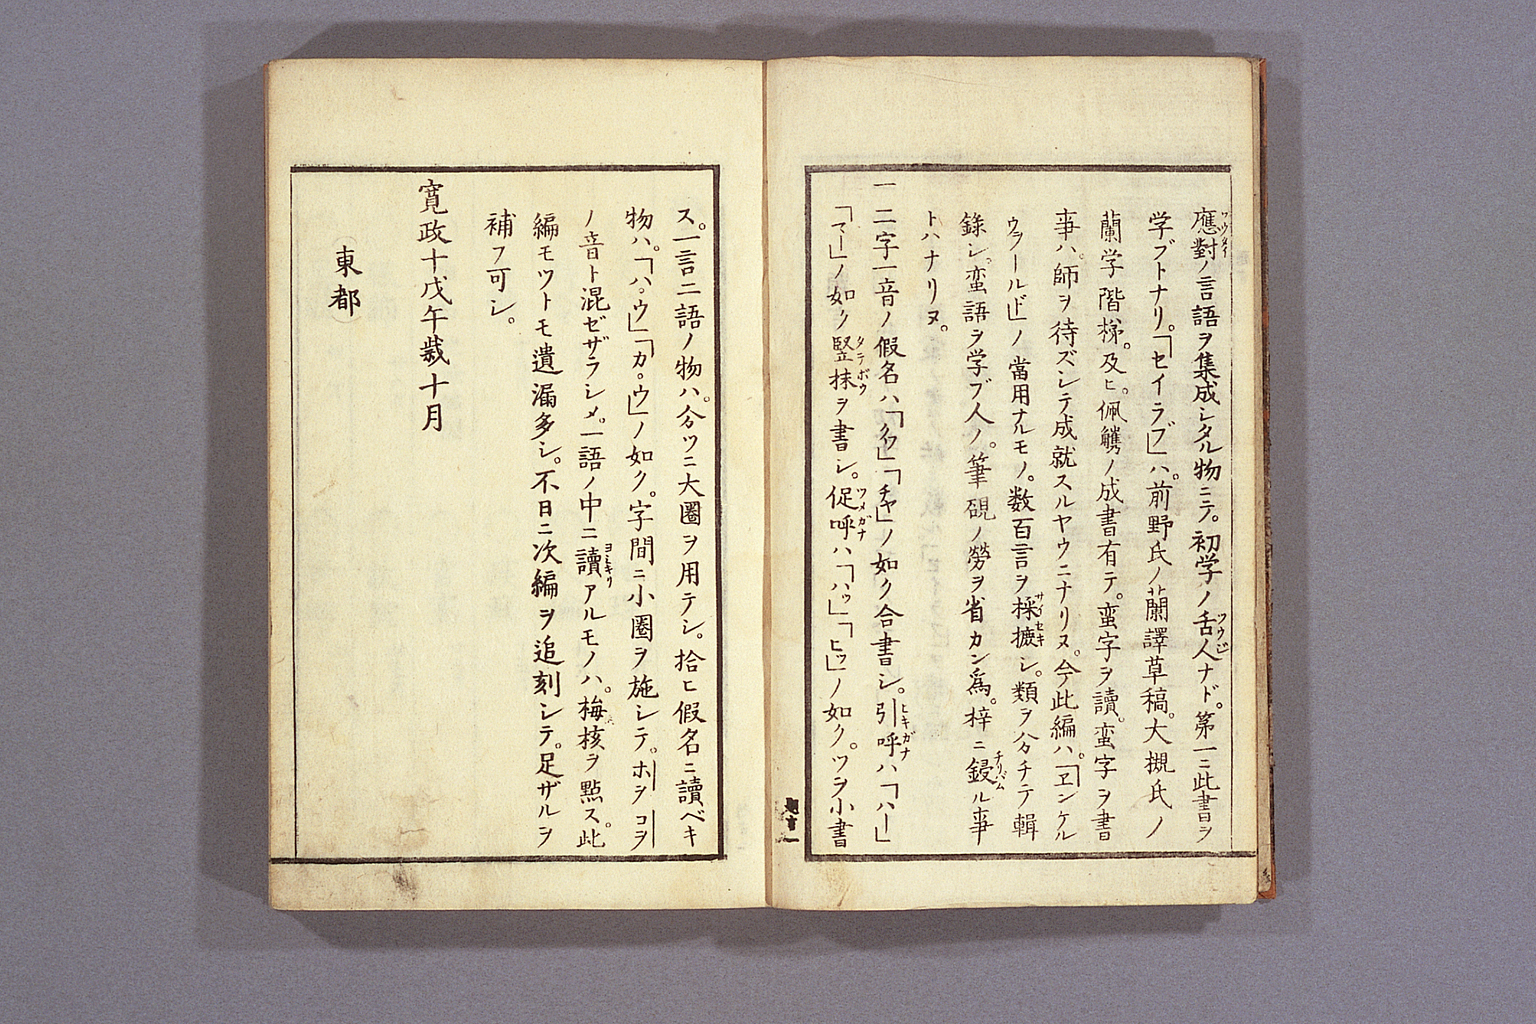 應對ノ言語ヲ集成シタル物ニテ。初学ノ舌人ナド。第一ニ此書ヲ
学ブトナリ。「セイラブ」ハ。前野氏ノ蘭譯草稿。大槻氏ノ
蘭学階梯。及ヒ。佩觿ノ成書有テ。蛮字ヲ讀。蛮字ヲ書
事ハ。師ヲ待ズシテ成就スルヤウニナリヌ。今此編ハ。「ヱンケル
ウヲールド」ノ當用ナルモノ。数百言ヲ採摭シ。類ヲ分チテ輯
錄シ。蛮語ヲ学ブ人ノ。筆硯ノ勞ヲ省カン爲。梓ニ鋟ル事
トハナリヌ。
一 二字一音ノ假名ハ「クヮ」「チャ」ノ如ク合書シ。引呼ハ「ハー」
「マー」ノ如ク竪抹ヲ書シ。促呼ハ「ハッ」「ヒッ」ノ如ク。ツヲ小書
ス。一言二語ノ物ハ。分ツニ大圈ヲ用テシ。拾ヒ假名ニ讀ベキ
物ハ。「ハ。ウ」「カ。ウ」ノ如ク。字間ニ小圈ヲ施シテ。ホヲ コヲ
ノ音ト混ゼザラシメ。一語ノ中ニ讀アルモノハ。梅核ヲ點ス。此
編モツトモ遺漏多シ。不日ニ次編ヲ追刻シテ。足ザルヲ
補フ可シ。
寛政十戊午歳十月
東都